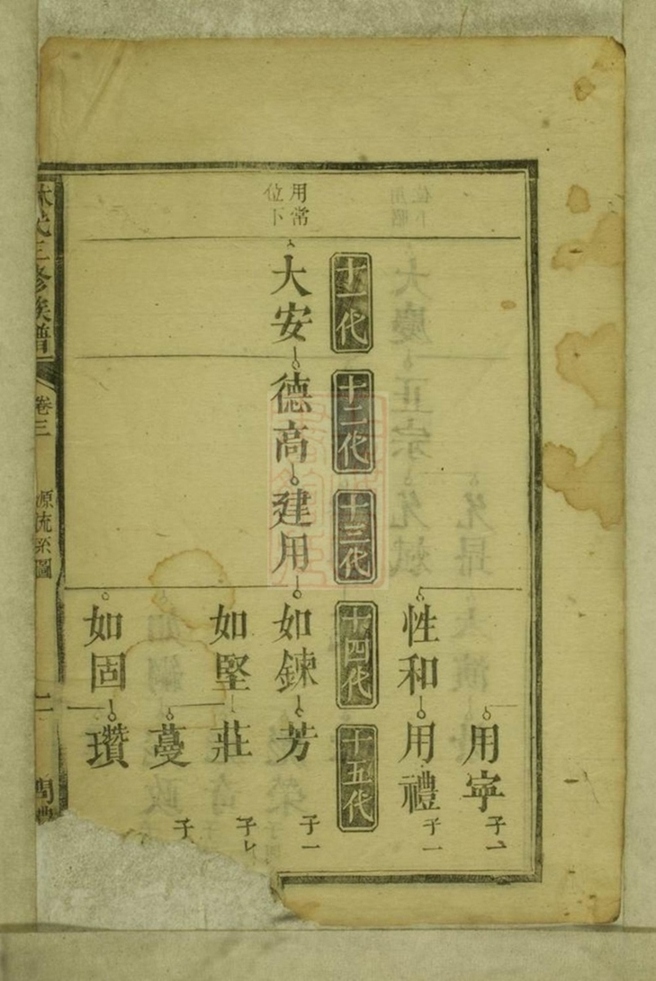 用寧 子一
性和 用禮 子一
十一代 十二代 十三代 十四代 十五代
用常
位下
大安 德高 建用 如鍊 芳 子一
如堅 莊 子
蔓 子
如固 瓚
氏三修族譜 卷三 源流系圖